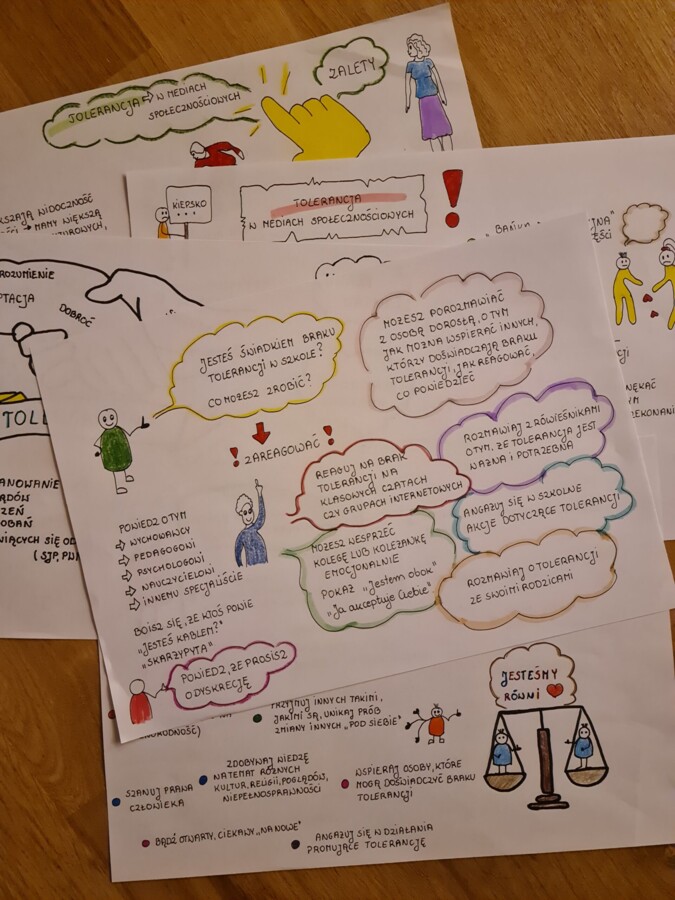 TOLERANCJA ⇒ W MEDIACH
SPOŁECZNOŚCIOWYCH
ZALETY
KSZAJĄ WIDOCZNOŚĆ
→ MAMY WIĘKSZĄ
KIEPSKO
...
TOLERANCJA
W MEDIACH SPOŁECZNOŚCIOWYCH
!
ROZUMIENIE
PTACJA
DOBROĆ
I.P.
TOL
ANOWANIE
ĄDÓW
ZEŃ
OBAŃ
WIĄCYCH SIĘ OD
(SJP, PWN
NĘKAĆ
YM
ZEKONANI
JESTEŚ ŚWIADKIEM BRAKU
TOLERANCJI W SZKOLE?
CO MOŻESZ ZROBIĆ?
! ZAREAGOWAĆ !
MOŻESZ POROZMAWIAĆ
Z OSOBĄ DOROSŁĄ, O TYM
JAK MOŻNA WSPIERAĆ INNYCH,
KTÓRZY DOŚWIADCZAJĄ BRAKU
TOLERANCJI, JAK REAGOWAĆ,
CO POWIEDZIEĆ
ROZMAWIAJ Z RÓWIEŚNIKAMI
O TYM, ŻE TOLERANCJA JEST
WAŻNA I POTRZEBNA
REAGUJ NA BRAK
TOLERANCJI NA
KLASOWYCH CZATACH
CZY GRUPACH INTERNETOWYCH
ANGAŻUJ SIĘ W SZKOLNE
AKCJE DOTYCZĄCE TOLERANCJI
MOŻESZ WESPRZEĆ
KOLEGĘ LUB KOLEŻANKĘ
EMOCJONALNIE
POKAŻ "Jestem obok"
"Ja akceptuję Ciebie"
ROZMAWIAJ O TOLERANCJI
ZE SWOIMI RODZICAMI
POWIEDZ O TYM
⇒ WYCHOWAWCY
⇒ PEDAGOGOWI
⇒ PSYCHOLOGOWI
⇒ NAUCZYCIELOWI
⇒ INNEMU SPECJALIŚCIE
BOISZ SIĘ, ŻE KTOŚ POWIE
"JESTEŚ KABLEM?"
"SKARŻYPYTA"
POWIEDZ, ŻE PROSISZ
O DYSKRECJĘ
ORODNOŚĆ)
PRZYJMUJ INNYCH TAKIMI,
JAKIMI SĄ, UNIKAJ PRÓB
ZMIANY INNYCH "POD SIEBIE"
JESTEŚMY
RÓWNI
SZANUJ PRAWA
CZŁOWIEKA
ZDOBYWAJ WIEDZĘ
NA TEMAT RÓŻNYCH
KULTUR, RELIGII, POGLĄDÓW,
NIEPEŁNOSPRAWNOŚCI
WSPIERAJ OSOBY, KTÓRE
MOGĄ DOŚWIADCZYĆ BRAKU
TOLERANCJI
BĄDŹ OTWARTY, CIEKAWY "NA NOWE"
ANGAŻUJ SIĘ W DZIAŁANIA
PROMUJĄCE TOLERANCJĘ